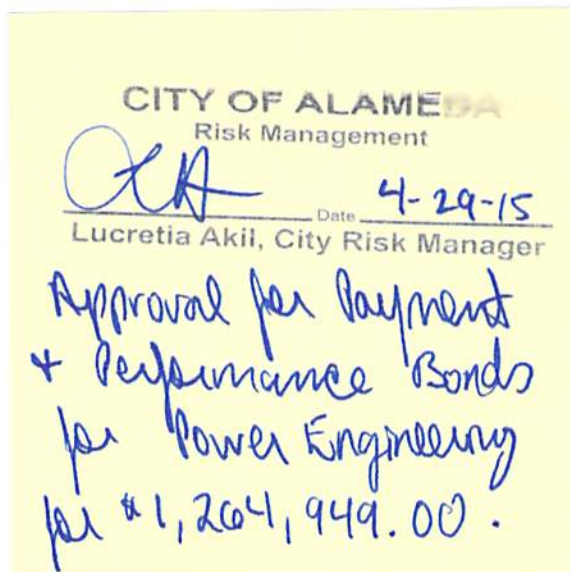 CITY OF ALAMEDA
Risk Management
LA Date 4-29-15
Lucretia Akil, City Risk Manager
Approval for Payment
+ Performance Bonds
for Power Engineering
for $1,264,949.00.